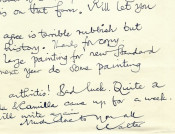 is on that firm. I'll let you
agee is terrible rubbish but
history. Thanks for copy.
large painting for new Standard
next year do one painting
arthritis! Bad luck. Quite a
& Camille came up for a week.
will write
to you all